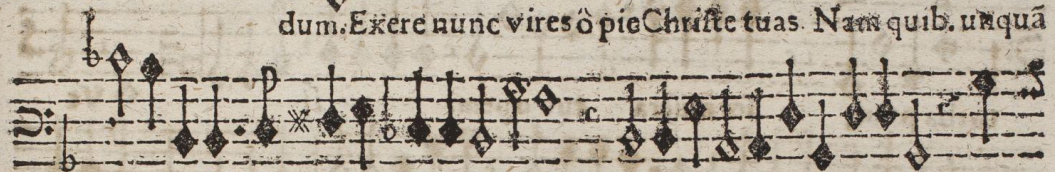 dum. Exere nunc vires ô pie Chriſte tuas. Nam quib. unquā